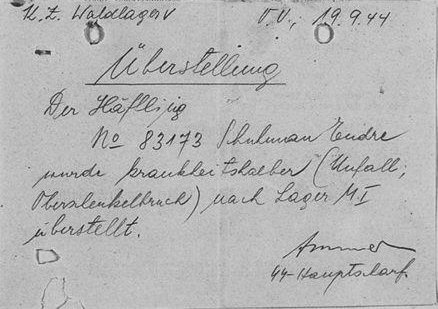 K.Z. Waldlager V
O.U., 19.9.44
Überstellung
Der Häftling
No 83173 Schuhman Endre
wurde krankheitshalber (Unfall,
Oberschenkelbruch) nach Lager M I
überstellt.
44-Hauptscharf.